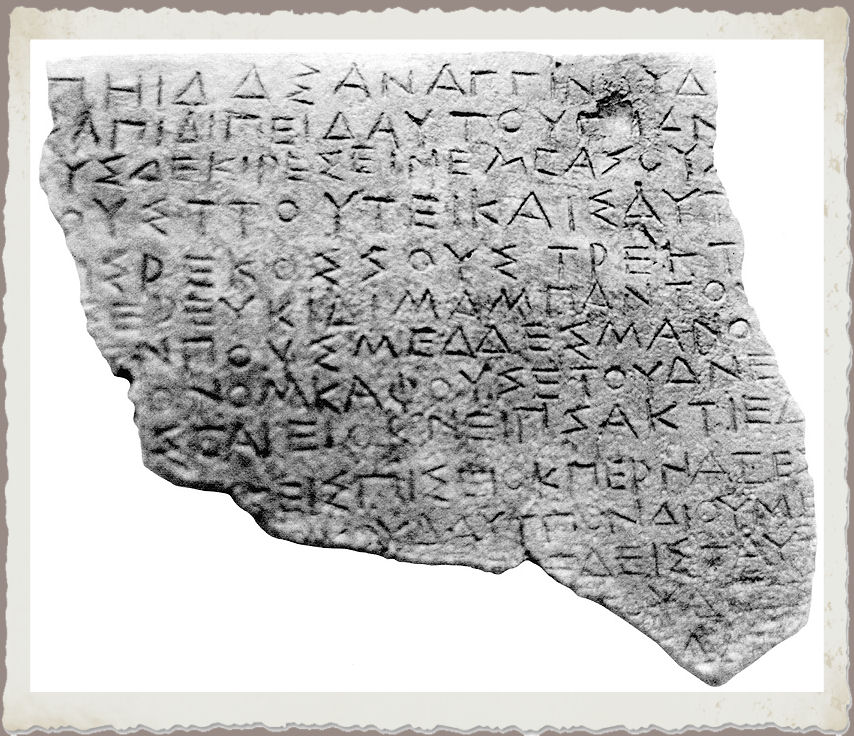 ΠΗΙΔ ΔΣΑΝΑΓΓΙΝΟΥΔ
ΑΠΙΔΙΠΕΙΔΑΥΤΟΥΠΙΔΝ
ΥΣΔΕΚΙΡΕΣΕΙΝΕΜΜΕΑΣΟΥ
ΟΥΣΤΤΟΥΤΕΙΚΑΙΣΑΥΤ
ΣΡΕΚΟΣΣΟΥΣΤΡΕΠΤ
ΕΡΕΥΚΙΔΙΜΑΜΠΑΝΤΟ
ΝΠΟΥΣΜΕΔΔΕΣΜΑΝΟ
ΟΝΟΜΚΑΦΟΥΣΕΤΟΥΔΝΕ
ΣΟΑΙΕΙΟΣΝΕΙΠΣΑΚΤΙΕΔ
ΕΙΣΠΙΣΕΙΟΚΠΕΡΝΑΣΕ
ΟΥΔΑΥΤΠΟΝΔΙΟΥΜΙ
ΔΕΙΣΤΑΥ